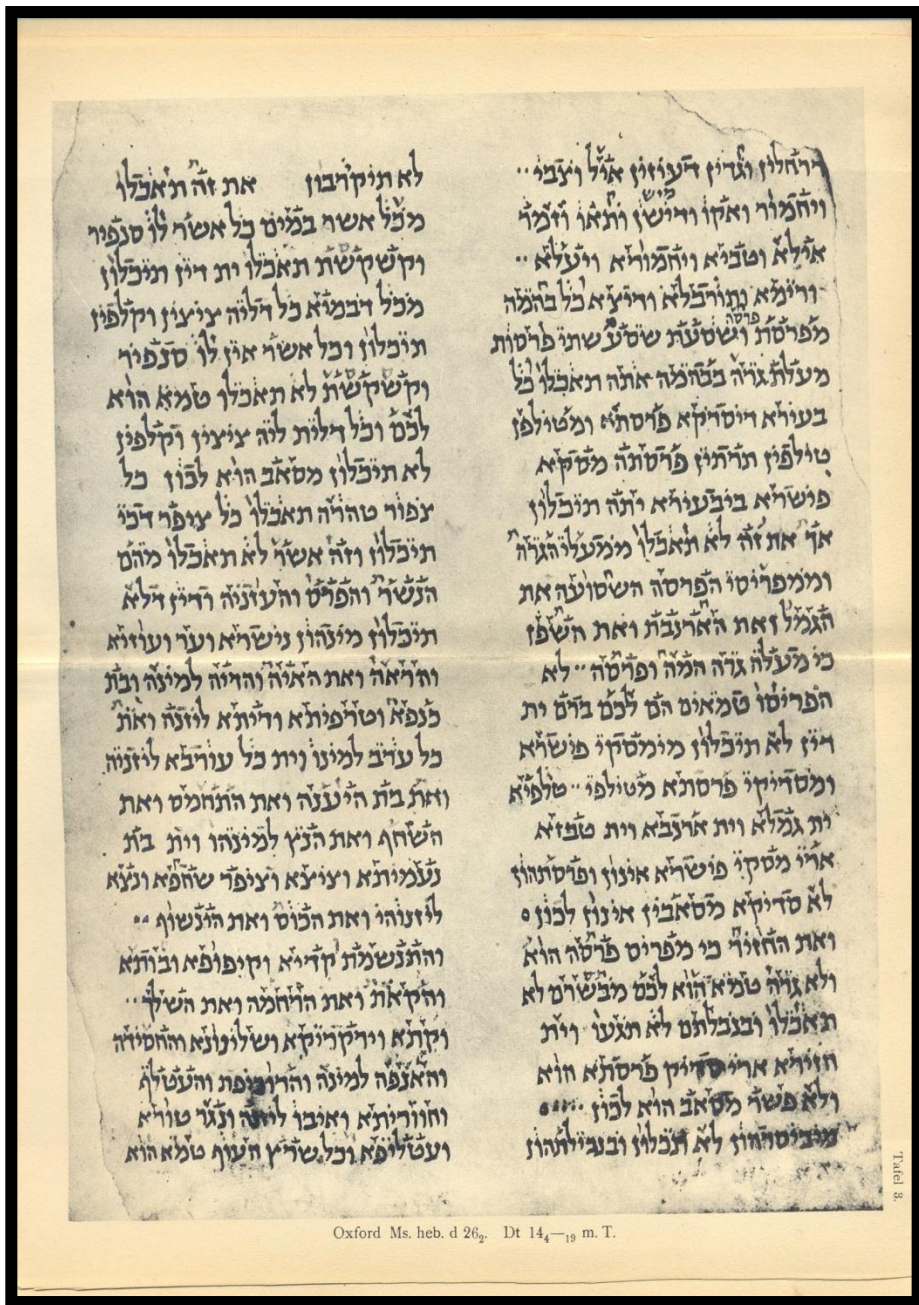 דרחלין וגדין דעיזין איל וצבי ··
מיש
ויחמור ואקו ודישן ותאו וזמר
אילא וטביא ויחמוריא ויעלא ··
ורימא ותורבלא ודיצא כל בהמה
פרסה
מפרסת ושסעת שסע שתי פרסות
מעלת גרה בבהמה אתה תאכלו כל
בעירא דיסדיקא פרסתא ומטילפן
טילפין תרתין פרסתה מסקא
פישרא ביבעירא יתה תיכלון
אך את זה לא תאכלו ממעלי הגרה
וממפריסי הפרסה השסועה את
הגמל ואת הארנבת ואת השפן
כי מעלה גרה המה ופרסה ·· לא
הפריסו טמאים הם לכם ברם ית
דין לא תיכלון מימסקי פישרא
ומסדיקי פרסתא מטילפי ·· טלפיא
ית גמלא וית ארנבא וית טבזא
ארי מסקי פישרא אינון ופרסתהון
לא סדיקא מסאבין אינון לכון ∘
ואת החזיר כי מפריס פרסה הוא
ולא גרה טמא הוא לכם מבשרם לא
תאכלו ובנבלתם לא תגעו וית
חזירא ארי סדיק פרסתא הוא
ולא פשר מסאב הוא לכון ····
מיביסרהון לא תיכלון ובנבילתהון
לא תיקרבון את זה תאכלו
מכל אשר במים כל אשר לו סנפיר
וקשקשת תאכלו ית דין תיכלון
מכל דבמיא כל דליה ציצין וקלפין
תיכלון וכל אשר אין לו סנפיר
וקשקשת לא תאכלו טמא הוא
לכם וכל דלית ליה ציצין וקלפין
לא תיכלון מסאב הוא לכון כל
צפור טהרה תאכלו כל ציפר דכי
תיכלון וזה אשר לא תאכלו מהם
הנשר והפרס והעזניה ודין דלא
תיכלון מינהון נישרא וער ועוזיא
והראה ואת האיה והדיה למינה ובת
כנפא וטרפיתא ודיתא ליזנה ואת
כל ערב למינו וית כל עורבא ליזניה
ואת בת היענה ואת התחמס ואת
השחף ואת הנץ למינהו וית בת
נעמיתא וציצא וציפר שחפא ונצא
ליזנוהי ואת הכוס ואת הינשוף ··
והתנשמת קדיא וקיפופא ובותא
והקאת ואת הרחמה ואת השלך ··
וקתא וירקריקא ושלינונא והחסידה
והאנפה למינה והדוכיפת והעטלף
וחווריתא ואיבו ליזנה ונגר טורא
ועטליפא וכל שריץ העוף טמא הוא
Tafel 3.
Oxford Ms. heb. d 26₂. Dt 14₄—₁₉ m. T.